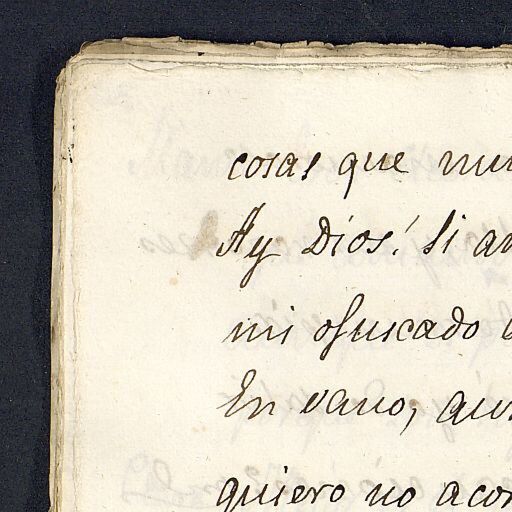 cosas que nun
Ay Dios! si an
mi ofuscado
En vano, aun
quiero no acor